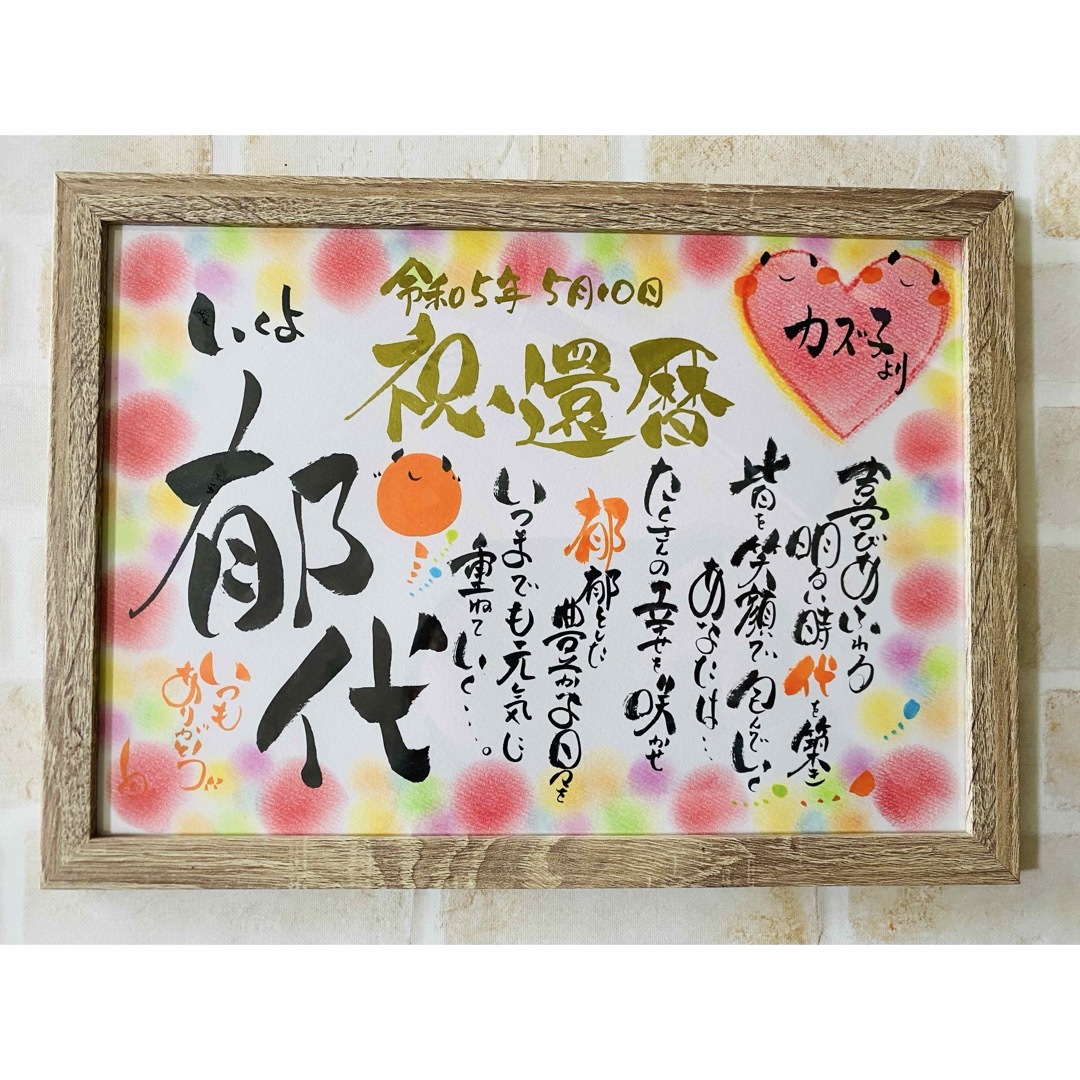 令和5年5月10日
祝・還暦
カズ子
より
いくよ
郁代
喜びあふれる
明るい時代を築き
皆を笑顔で包んでいく
あなたは…
たくさんの幸せを咲かせ
郁郁とした
豊かな日々を
いつまでも元気に
重ねていく…。
いつも
ありがとう